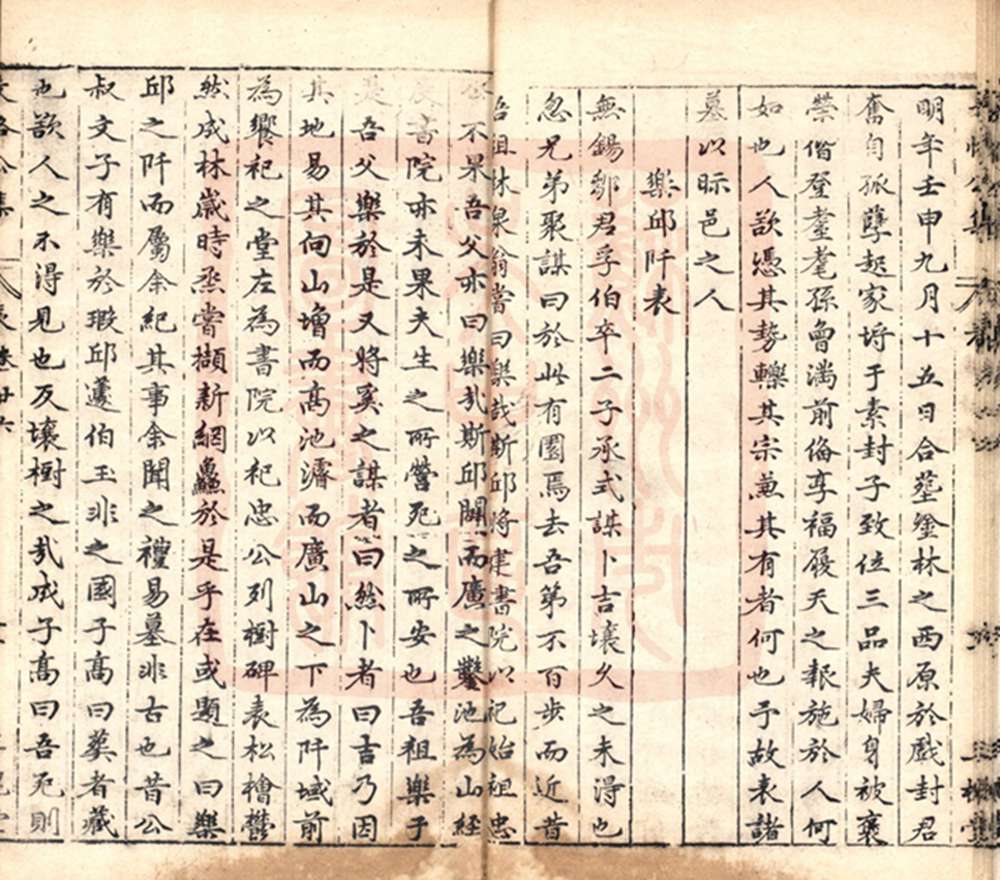 明年壬申九月十五日合塟釡林之西原於戲封君
奮自孤孽起家埒于素封子致位三品夫婦身被褒
榮偕登耋耄孫曾滿前俻享福履天之報施於人何
如也人欲憑其勢轢其宗兼其有者何也予故表諸
墓以眎邑之人
樂邱阡表
無錫鄒君孚伯卒二子承式謀卜吉壤久之未得也
忽兄弟聚謀曰於此有園焉去吾第不百步而近昔
吾祖林泉翁嘗曰樂哉斯邱將建書院以祀始祖忠
公不果吾父亦曰樂哉斯邱闢而廬之鑿池為山經
書院亦未果夫生之所營死之所安也吾祖樂于
是吾父樂於是又將奚之謀者曰然卜者曰吉乃因
其地易其向山增而高池濬而廣山之下為阡域前
為饗祀之堂左為書院以祀忠公列樹碑表松檜鬱
然成林歲時烝嘗擷新網鱻於是乎在或題之曰樂
邱之阡而屬余紀其事余聞之禮易墓非古也昔公
叔文子有樂於瑕邱蘧伯玉非之國子高曰葬者藏
也欲人之不得見也反壤樹之哉成子高曰吾死則